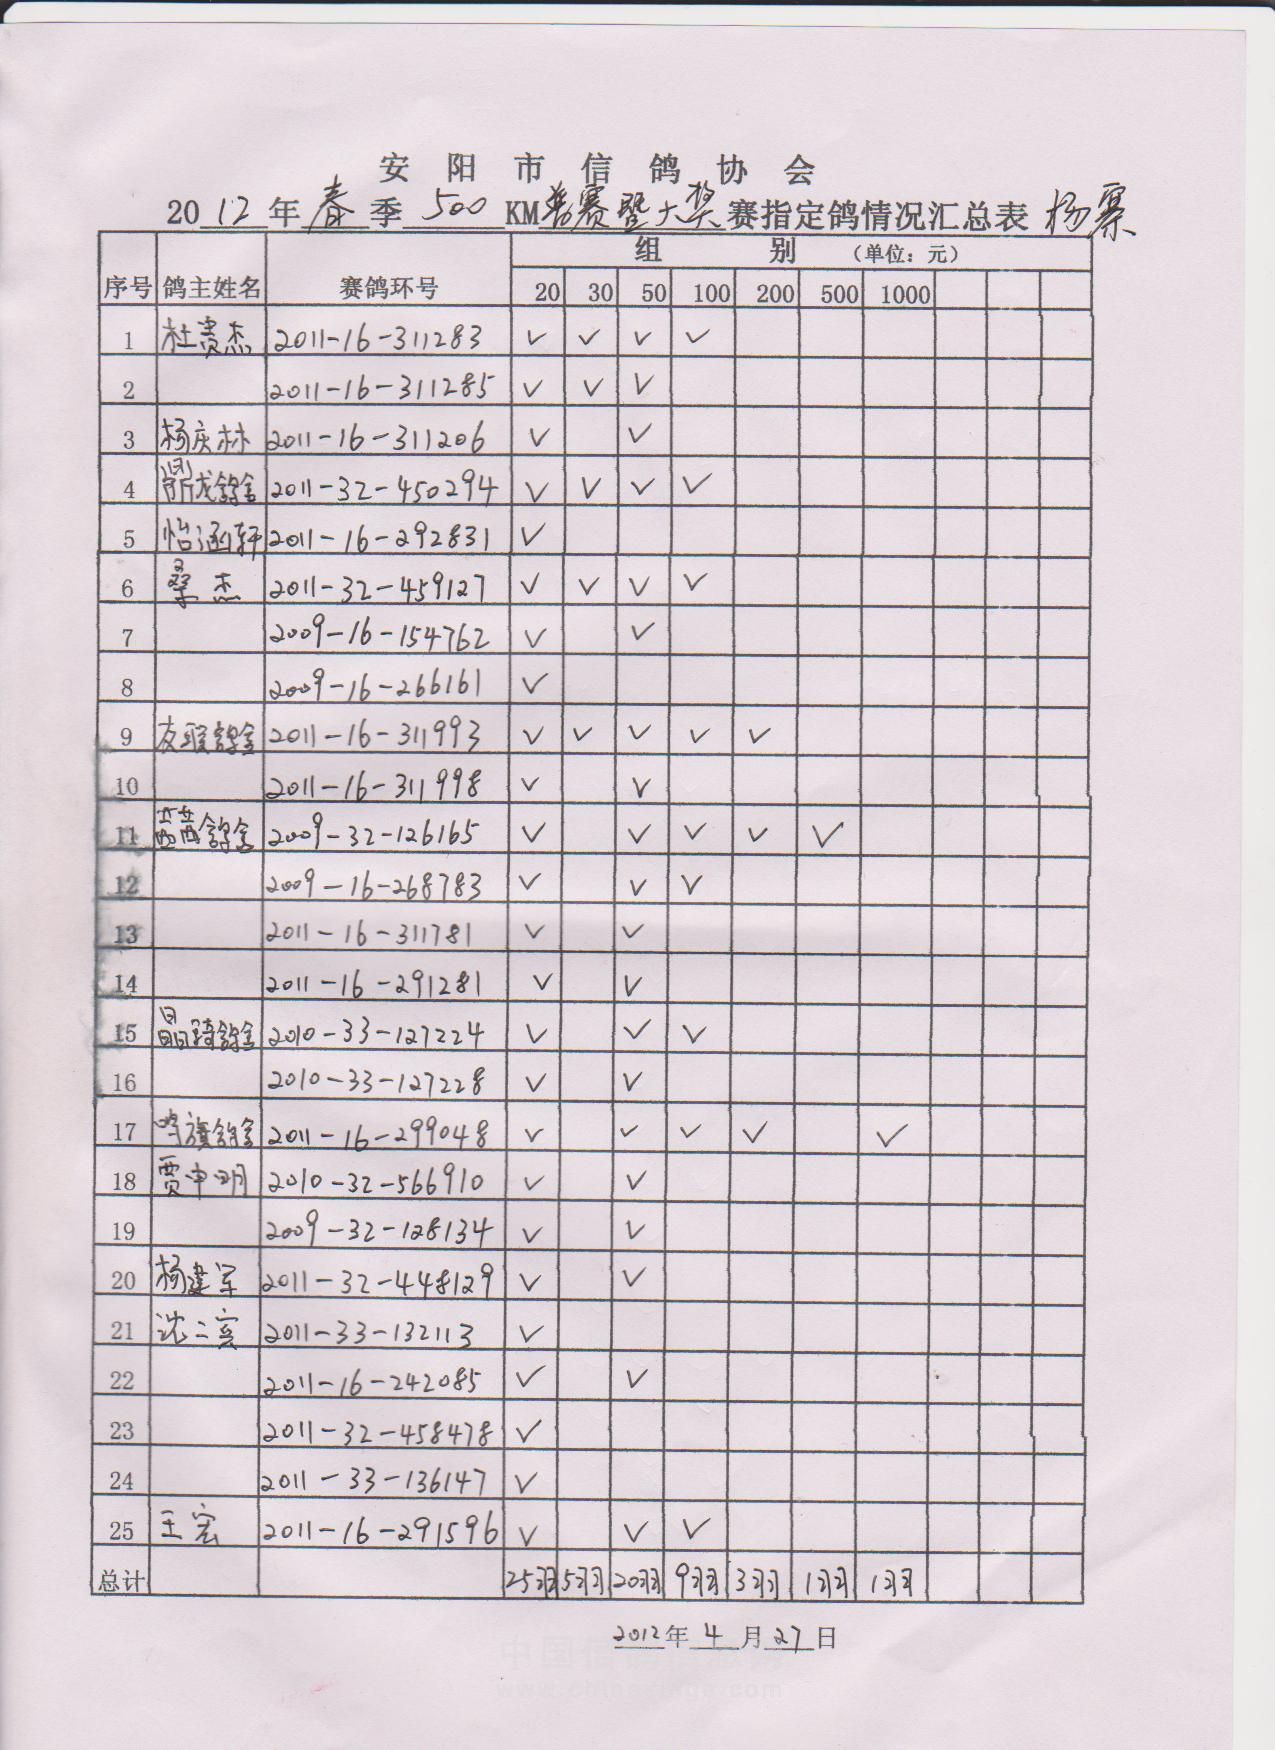 安阳市信鸽协会
2012年春季500KM普赛暨大奖赛指定鸽情况汇总表 杨寨
组别 (单位：元)
序号 鸽主姓名 赛鸽环号 20 30 50 100 200 500 1000
1 杜贵杰 2011-16-311283 ✓ ✓ ✓ ✓
2 2011-16-311285 ✓ ✓ ✓
3 杨庆林 2011-16-311206 ✓ ✓
4 鼎龙鸽舍 2011-32-450294 ✓ ✓ ✓ ✓
5 怡涵轩 2011-16-292831 ✓
6 桑杰 2011-32-459127 ✓ ✓ ✓ ✓
7 2009-16-154762 ✓ ✓
8 2009-16-266161 ✓
9 友联鸽舍 2011-16-311993 ✓ ✓ ✓ ✓ ✓
10 2011-16-311998 ✓ ✓
11 鸽舍 2009-32-126165 ✓ ✓ ✓ ✓ ✓
12 2009-16-268783 ✓ ✓ ✓
13 2011-16-311781 ✓ ✓
14 2011-16-291281 ✓ ✓
15 晶琦鸽舍 2010-33-127224 ✓ ✓ ✓
16 2010-33-127228 ✓ ✓
17 鸣旗鸽舍 2011-16-299048 ✓ ✓ ✓ ✓ ✓
18 贾中明 2010-32-566910 ✓ ✓
19 2009-32-128134 ✓ ✓
20 杨建军 2011-32-448129 ✓ ✓
21 沈二宾 2011-33-132113 ✓
22 2011-16-242085 ✓ ✓
23 2011-32-458478 ✓
24 2011-33-136147 ✓
25 王宏 2011-16-291596 ✓ ✓ ✓
总计 25羽 5羽 20羽 9羽 3羽 1羽 1羽
2012年4月27日